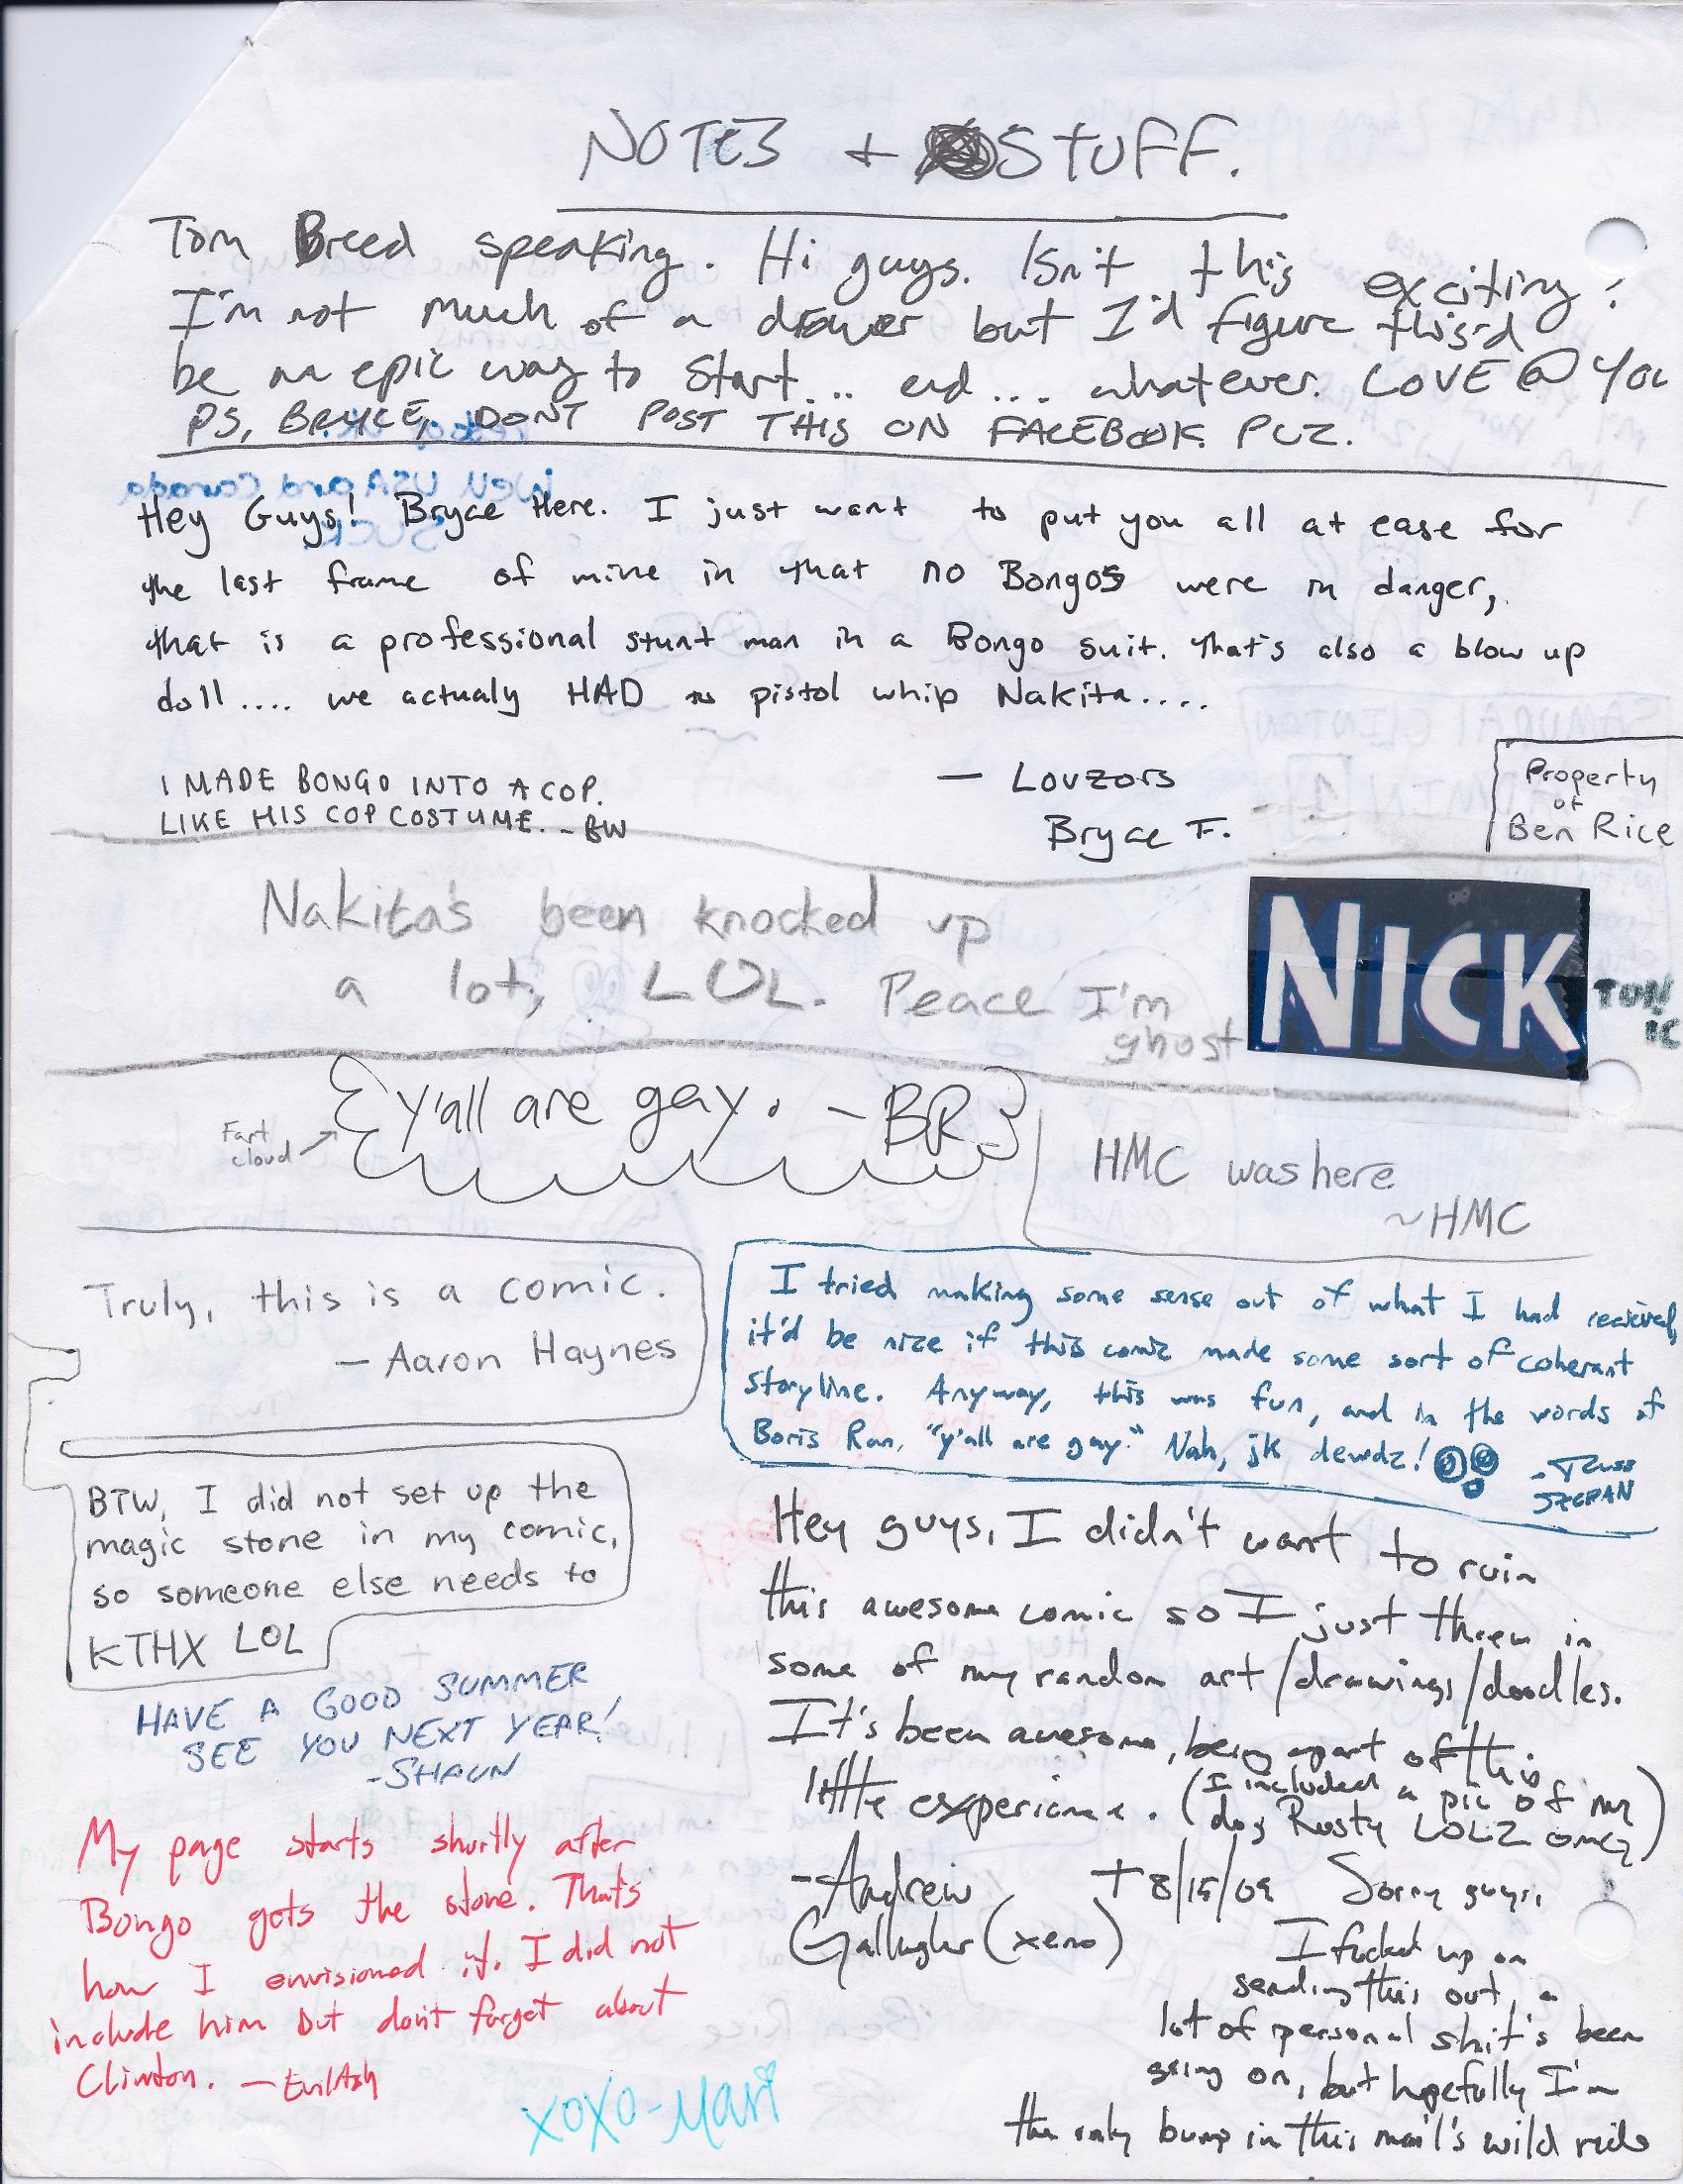 NOTES + STUFF.
Tom Breed speaking. Hi guys. Isn't this exciting?
I'm not much of a drawer but I'd figure this'd
be an epic way to start... end... whatever. LOVE @ YOU
PS, BRYCE, DONT POST THIS ON FACEBOOK. PLZ.
Hey Guys! Bryce Here. I just want to put you all at ease for
the last frame of mine in that no Bongos were in danger,
that is a professional stunt man in a Bongo suit. that's also a blow up
doll.... we actualy HAD to pistol whip Nakita....
— Lovzors
Bryce F.
I MADE BONGO INTO A COP.
LIKE HIS COP COSTUME. - BW
Property
of
Ben Rice
Nakita's been knocked up
a lot, LOL. Peace I'm
ghost
NICK
y'all are gay. - BR
Fart
cloud
HMC was here
~HMC
Truly, this is a comic.
— Aaron Haynes
I tried making some sense out of what I had recieved,
it'd be nice if this comic made some sort of coherant
storyline. Anyway, this was fun, and in the words of
Boris Ran, "y'all are gay." Nah, jk dewdz!
- Russ
SZCPAN
BTW, I did not set up the
magic stone in my comic,
so someone else needs to
KTHX LOL
HAVE A GOOD SUMMER
SEE YOU NEXT YEAR!
-SHAUN
Hey guys, I didn't want to ruin
this awesome comic so I just threw in
some of my random art/drawings/doodles.
It's been awesome, being apart of this
little experience. (I included a pic of my
dog Rusty LOLZ omg)
-Andrew
Gallagher (xeno)
My page starts shortly after
Bongo gets the stone. That's
how I envisioned it. I did not
include him but don't forget about
Clinton. — EvilAsh
+ 8/15/09 Sorry guys,
I fucked up on
sending this out, a
lot of personal shit's been
going on, but hopefully I'm
the only bump in this mail's wild ride
XOXO-Mari